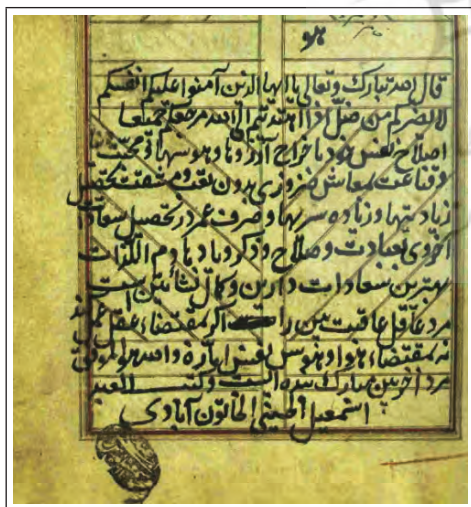 هو
قال الله تبارک وتعالی یا ایها الذین آمنوا علیکم انفسکم
لا یضرکم من ضل اذا اهتدیتم الی الله مرجعکم جمیعا
اصلاح نفس خود باخراج آرزوها و هوسها و محبت
وقناعت بمعاش ضروری بدون تعب و مشقت تحصیل
زیادتیها و زیاده سریها و صرف عمر در تحصیل سعادات
اخروی بعبادت و صلاح و ذکر و یاد هادم اللذات
بهترین سعادات دارین و کمال نشأتین است
مرد عاقل عاقبت بین را اگر بمقتضاء عقل عمل کند
نه بمقتضاء هوا و هوس نفس اماره والله هو الموفق
مرد آخربین مبارک بنده است وکتب العبد
اسمعیل الحسینی الخاتون آبادی